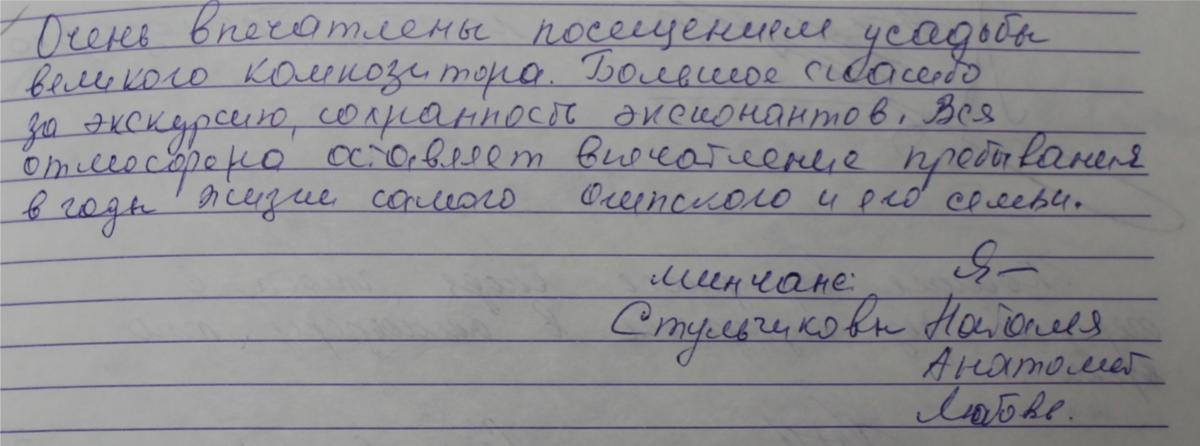 Очень впечатлены посещением усадьбы
великого композитора. Большое спасибо
за экскурсию, сохранность экспонантов. Вся
атмосфера оставляет впечатление пребывания
в годы жизни самого Огинского и его семьи.
минчане: Я—
Стульчиковы Наталия
Анатолий
Любовь.